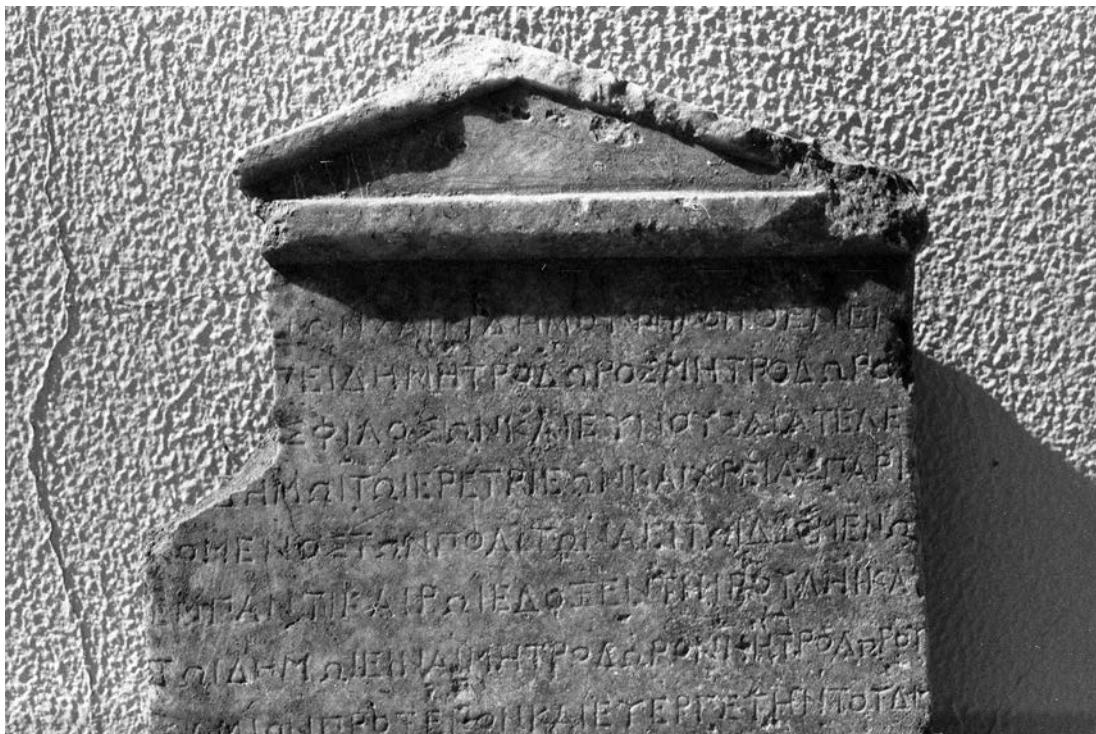 ΠΕΙΔΗΜΗΤΡΟΔΩΡΟΣΜΗΤΡΟΔΩΡΟΥ
ΣΦΙΛΟΣΩΝΚΑΙΕΥΝΟΥΣΔΙΑΤΕΛΕ
ΔΗΜΩΙΤΩΙΕΡΕΤΡΙΕΩΝΚΑΙΧΡΕΙΑΣΠΑΡΕ
ΟΜΕΝΟΣΤΩΝΠΟΛΙΤΩΝΑΕΙΤΩΙΔΕΟΜΕΝΩ
ΕΜΠΑΝΤΙΚΑΙΡΩΙΕΔΟΞΕΝΤΗΙΒΟΥΛΗΙΚΑΙ
ΤΩΙΔΗΜΩΙΕΙΝΑΙΜΗΤΡΟΔΩΡΟΝΜΗΤΡΟΔΩΡΟΥ
ΜΙΩΝΠΡΟΞΕΝΟΝΚΑΙΕΥΕΡΓΕΤΗΝΤΟΥΔΗ